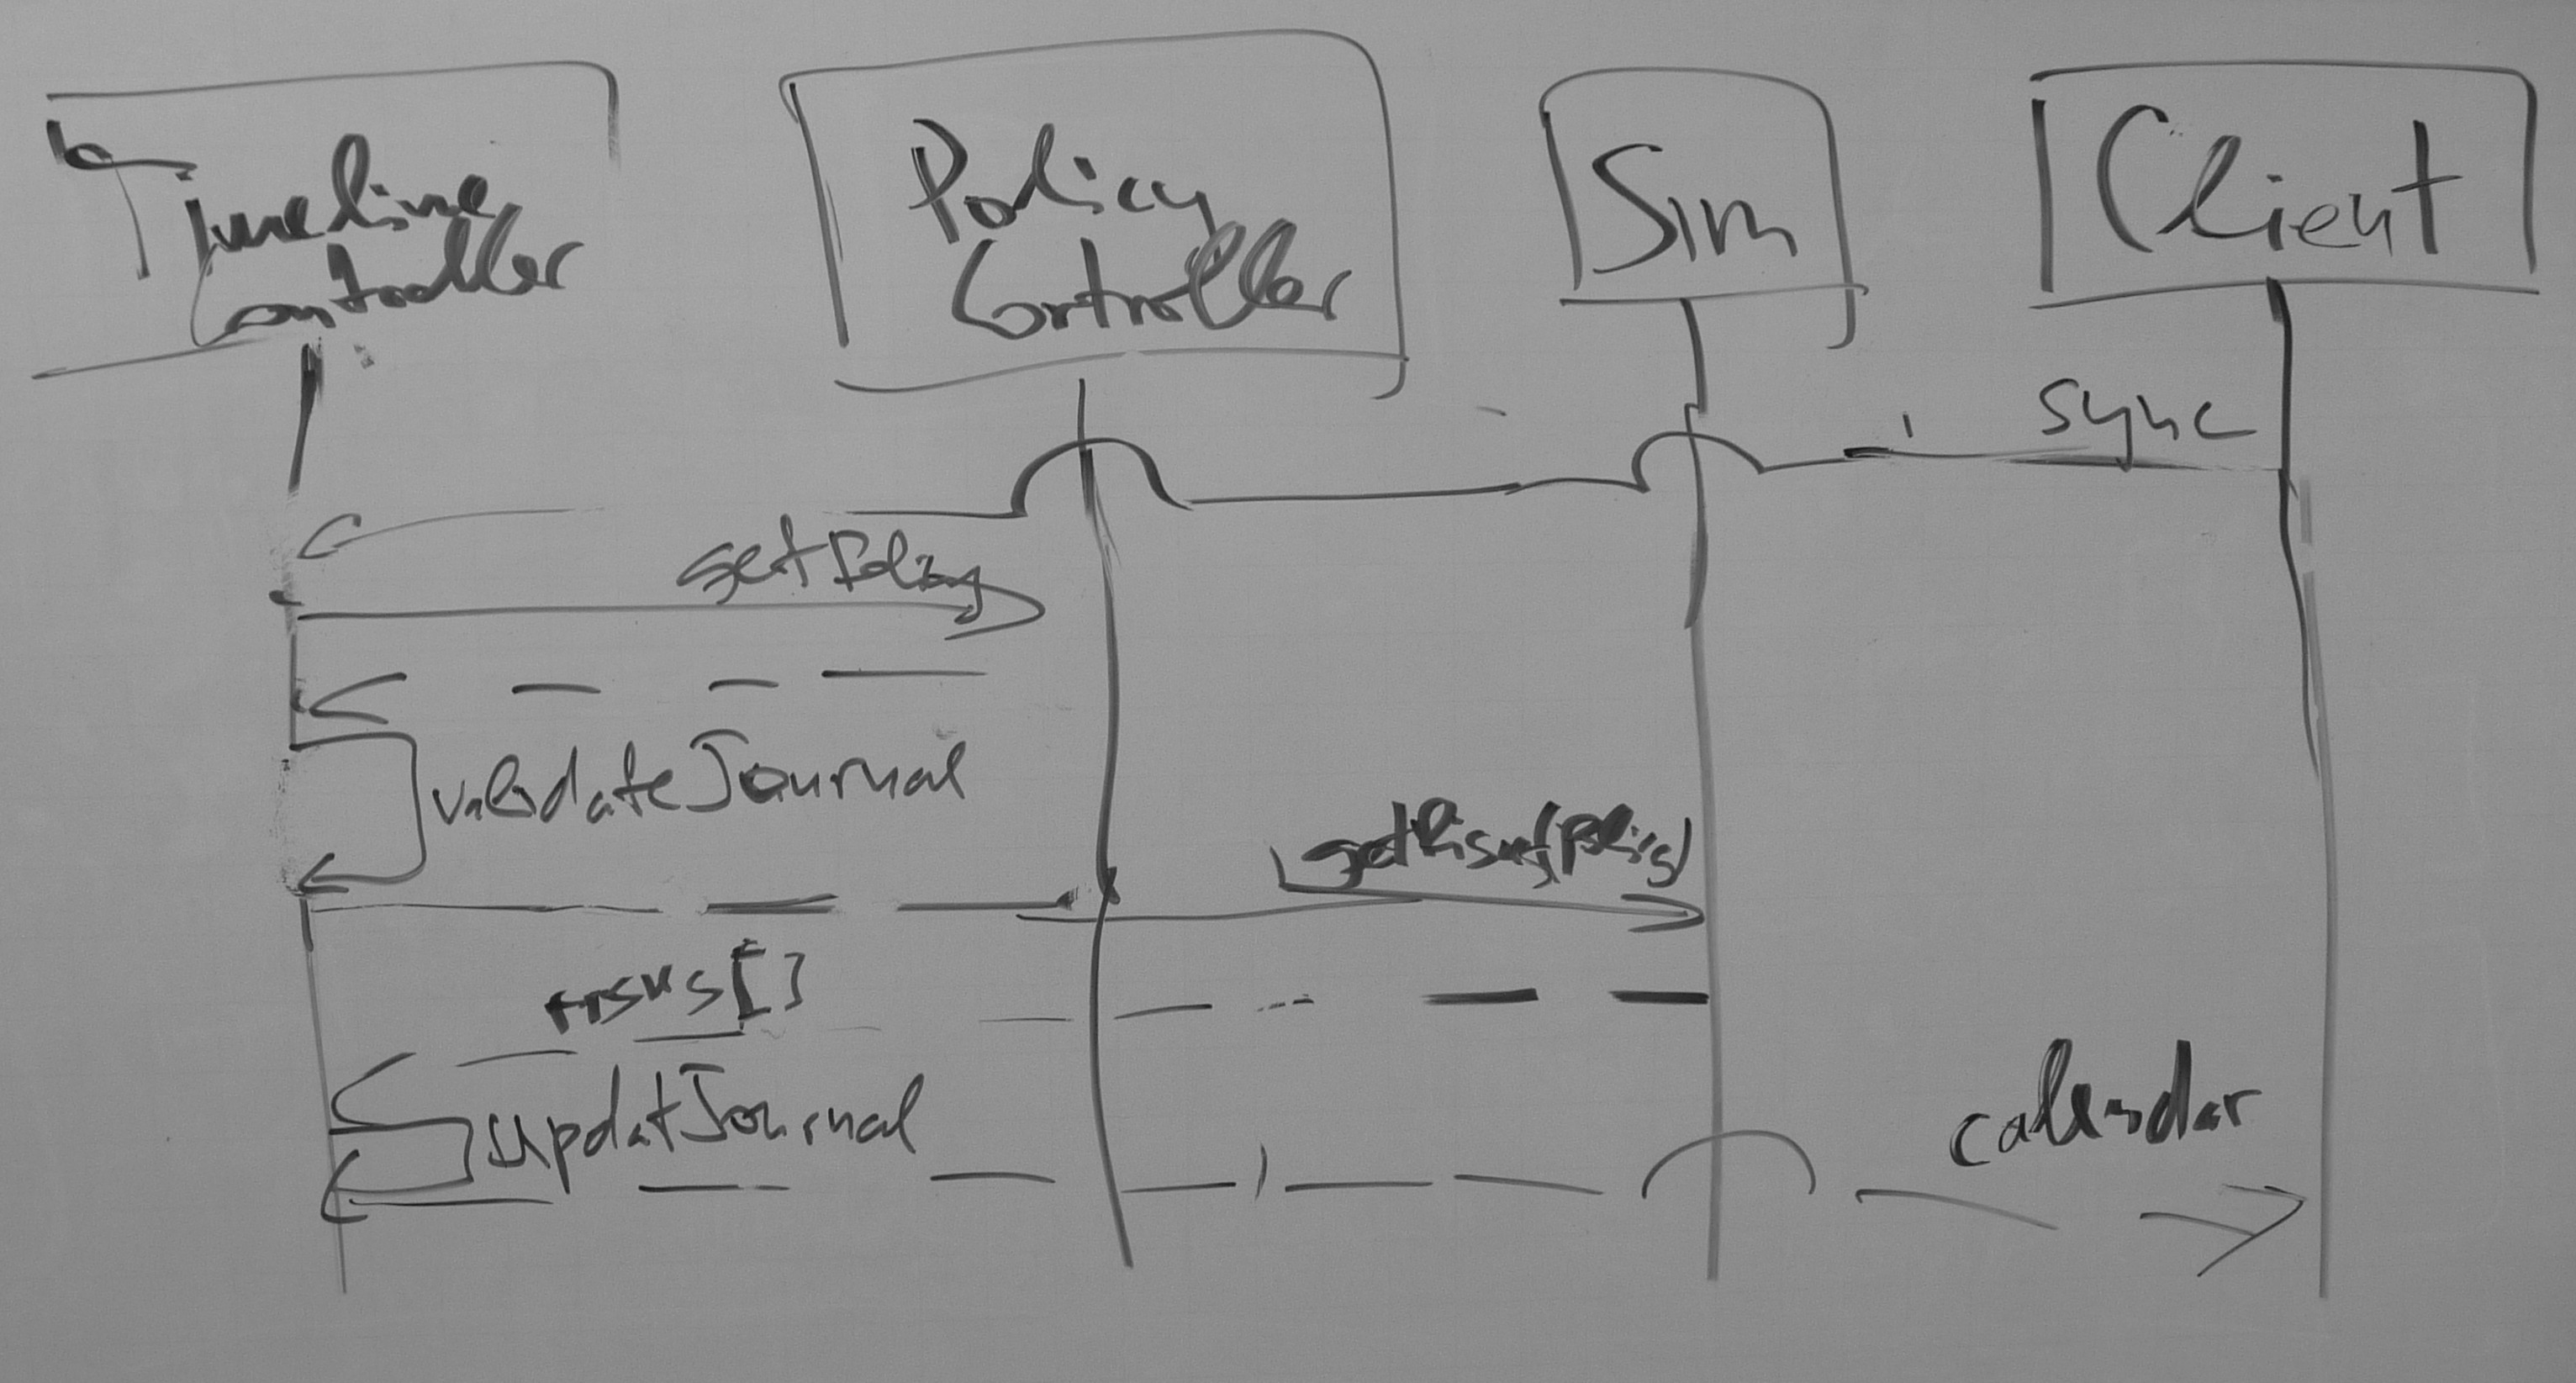 Timeline
Controller
Policy
Controller
Sim
Client
sync
getPolicy
validateJournal
rrsvs[]
updatJournal
calendar